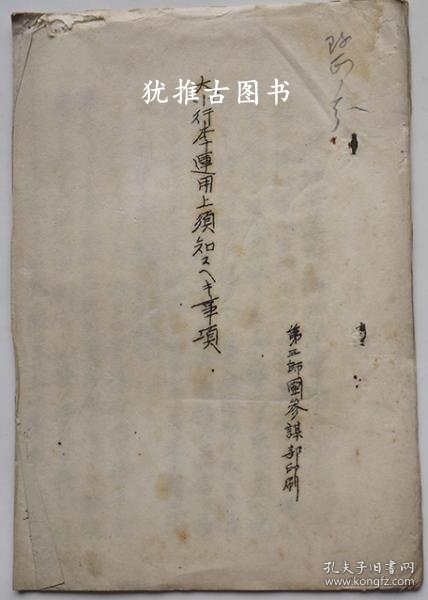 犹推古图书
大小行李運用上須知スヘキ事項
第三師團參謀部印刷
孔夫子旧书网
www.kongfz.com